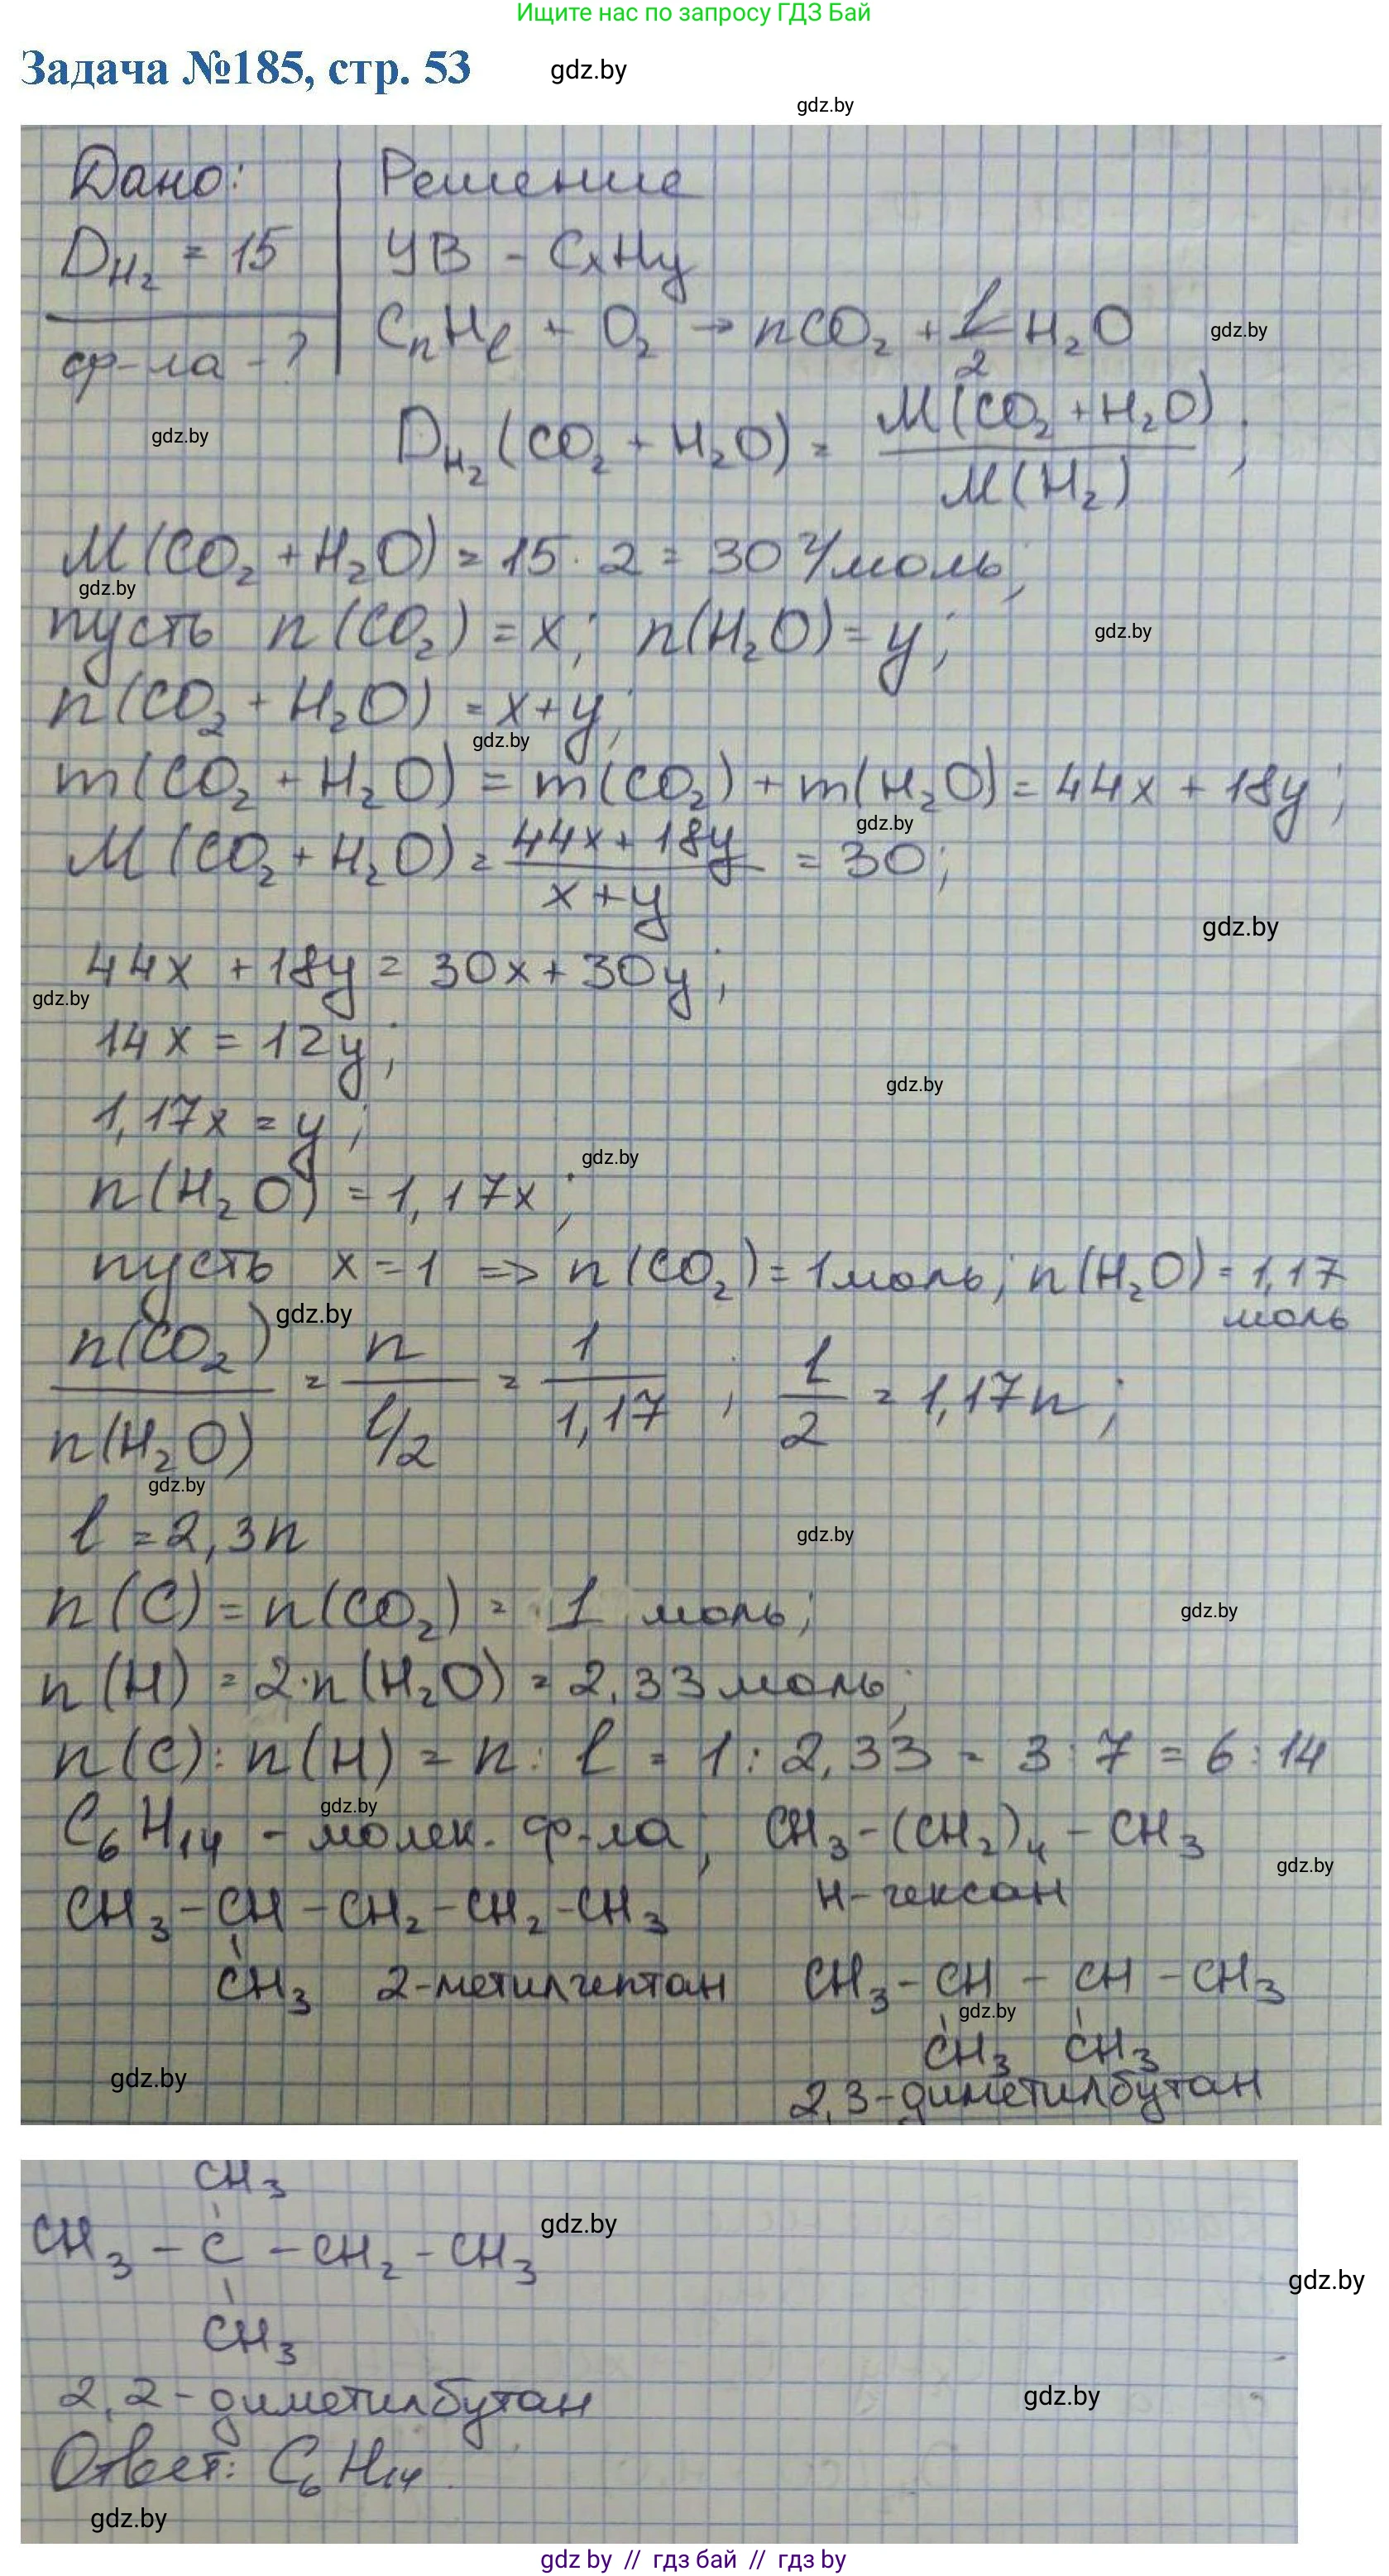 Ищите нас по запросу ГДЗ Бай
Задача №185, стр. 53
gdz.by
gdz.by
Дано:
Решение
D_H₂ = 15
УВ - CxHy
ф-ла - ?
CₙHₗ + O₂ → nCO₂ + l/2 H₂O
gdz.by
gdz.by
D_H₂(CO₂ + H₂O) = M(CO₂ + H₂O) / M(H₂) ;
M(CO₂ + H₂O) = 15 · 2 = 30 г/моль;
gdz.by
пусть n(CO₂) = x; n(H₂O) = y;
gdz.by
n(CO₂ + H₂O) = x+y;
gdz.by
m(CO₂ + H₂O) = m(CO₂) + m(H₂O) = 44x + 18y;
gdz.by
M(CO₂ + H₂O) = 44x + 18y / x + y = 30;
gdz.by
44x + 18y = 30x + 30y;
gdz.by
14x = 12y;
gdz.by
1,17x = y;
gdz.by
n(H₂O) = 1,17x;
пусть x = 1 => n(CO₂) = 1 моль; n(H₂O) = 1,17 моль
gdz.by
n(CO₂) / n(H₂O) = n / l/2 = 1 / 1,17 ; l / 2 = 1,17n;
gdz.by
l = 2,3n
gdz.by
n(C) = n(CO₂) = 1 моль;
gdz.by
n(H) = 2·n(H₂O) = 2,33 моль;
n(C) : n(H) = n : l = 1 : 2,33 = 3 : 7 = 6 : 14
gdz.by
C₆H₁₄ - молек. ф-ла; CH₃-(CH₂)₄-CH₃
gdz.by
н-гексан
CH₃-CH-CH₂-CH₂-CH₃
CH₃ 2-метилгептан
CH₃-CH-CH-CH₃
gdz.by
CH₃ CH₃
gdz.by
2,3-диметилбутан
CH₃
gdz.by
CH₃-C-CH₂-CH₃
gdz.by
CH₃
2,2-диметилбутан
gdz.by
Ответ: C₆H₁₄.
gdz.by
gdz by // гдз бай // gdz by